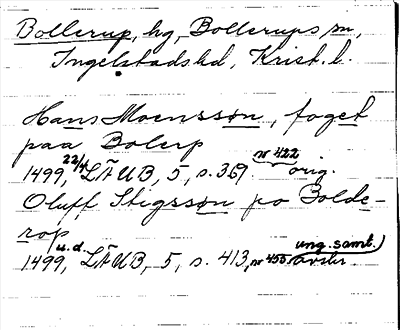 Bollerup, hg, Bollerups sn,
Ingelstads hd, Krist. l.
Hans Moensson, foget
paa Bolerp
1499, 22/4 LÄUB, 5, s. 369. nr 422 orig.
Oluff Stigsson po Bolde-
rop
1499, u.d. LÄUB, 5, s. 413, nr 455 ung. samt. avskr.